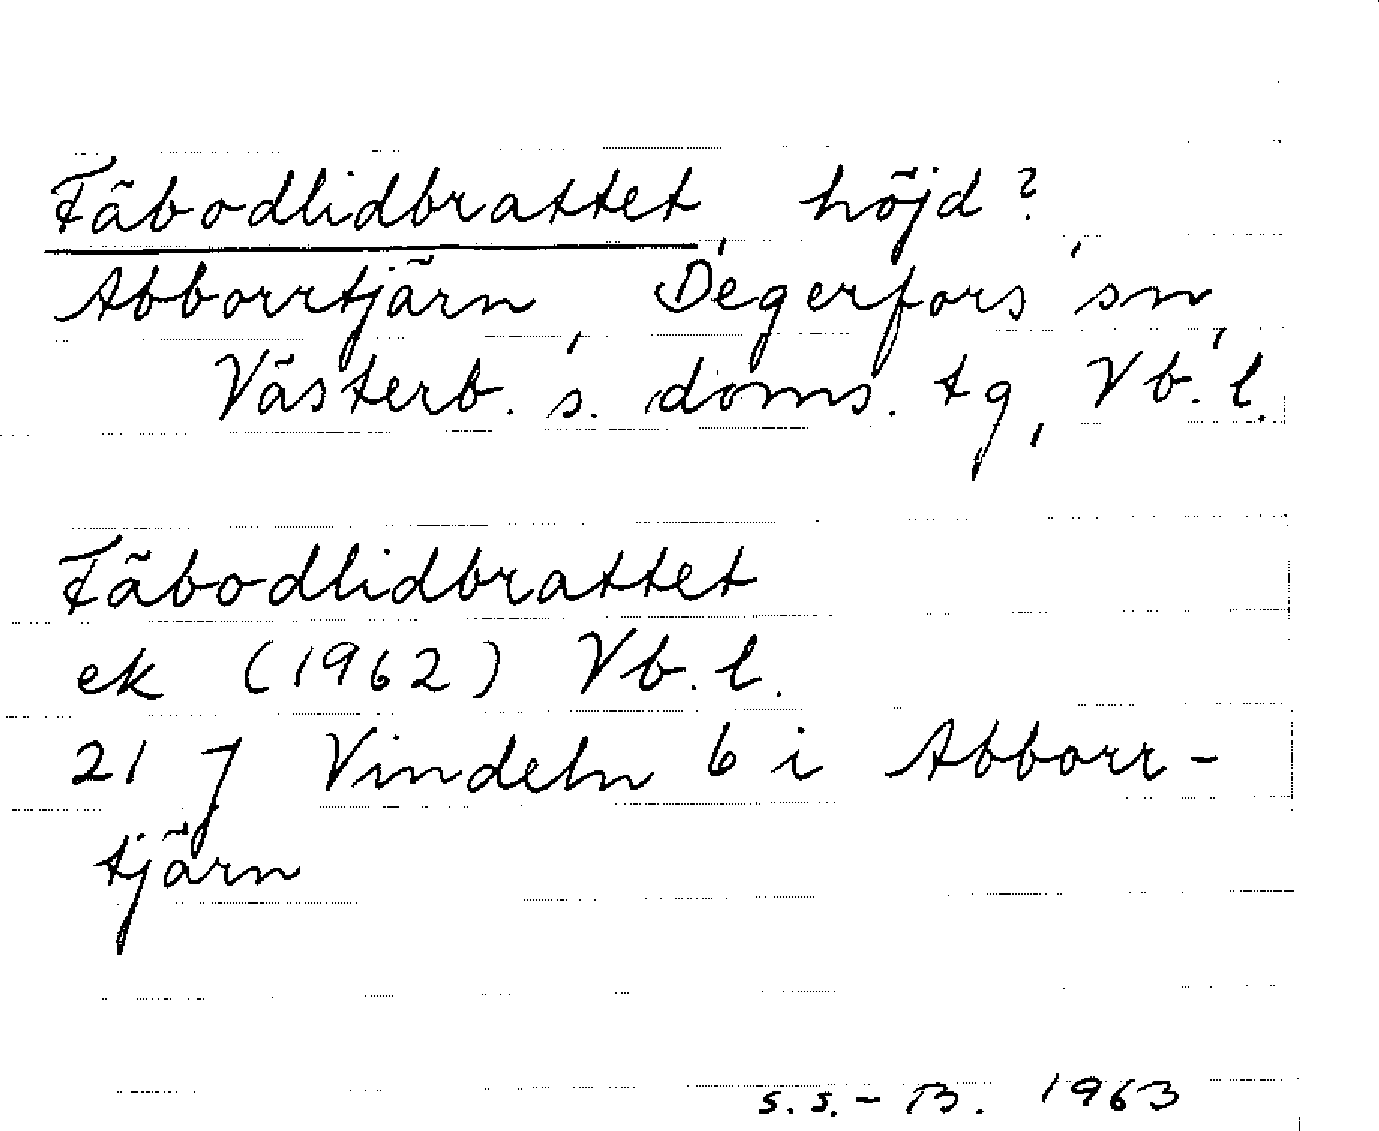 Fäbodlidbrattet, höjd?,
Abborrtjärn, Degerfors sn,
Västerb. s. doms. tg, Vb. l.
Fäbodlidbrattet
ek (1962) Vb. l.
21 J Vindeln 6 i Abborr-
tjärn
S.S.-B. 1963